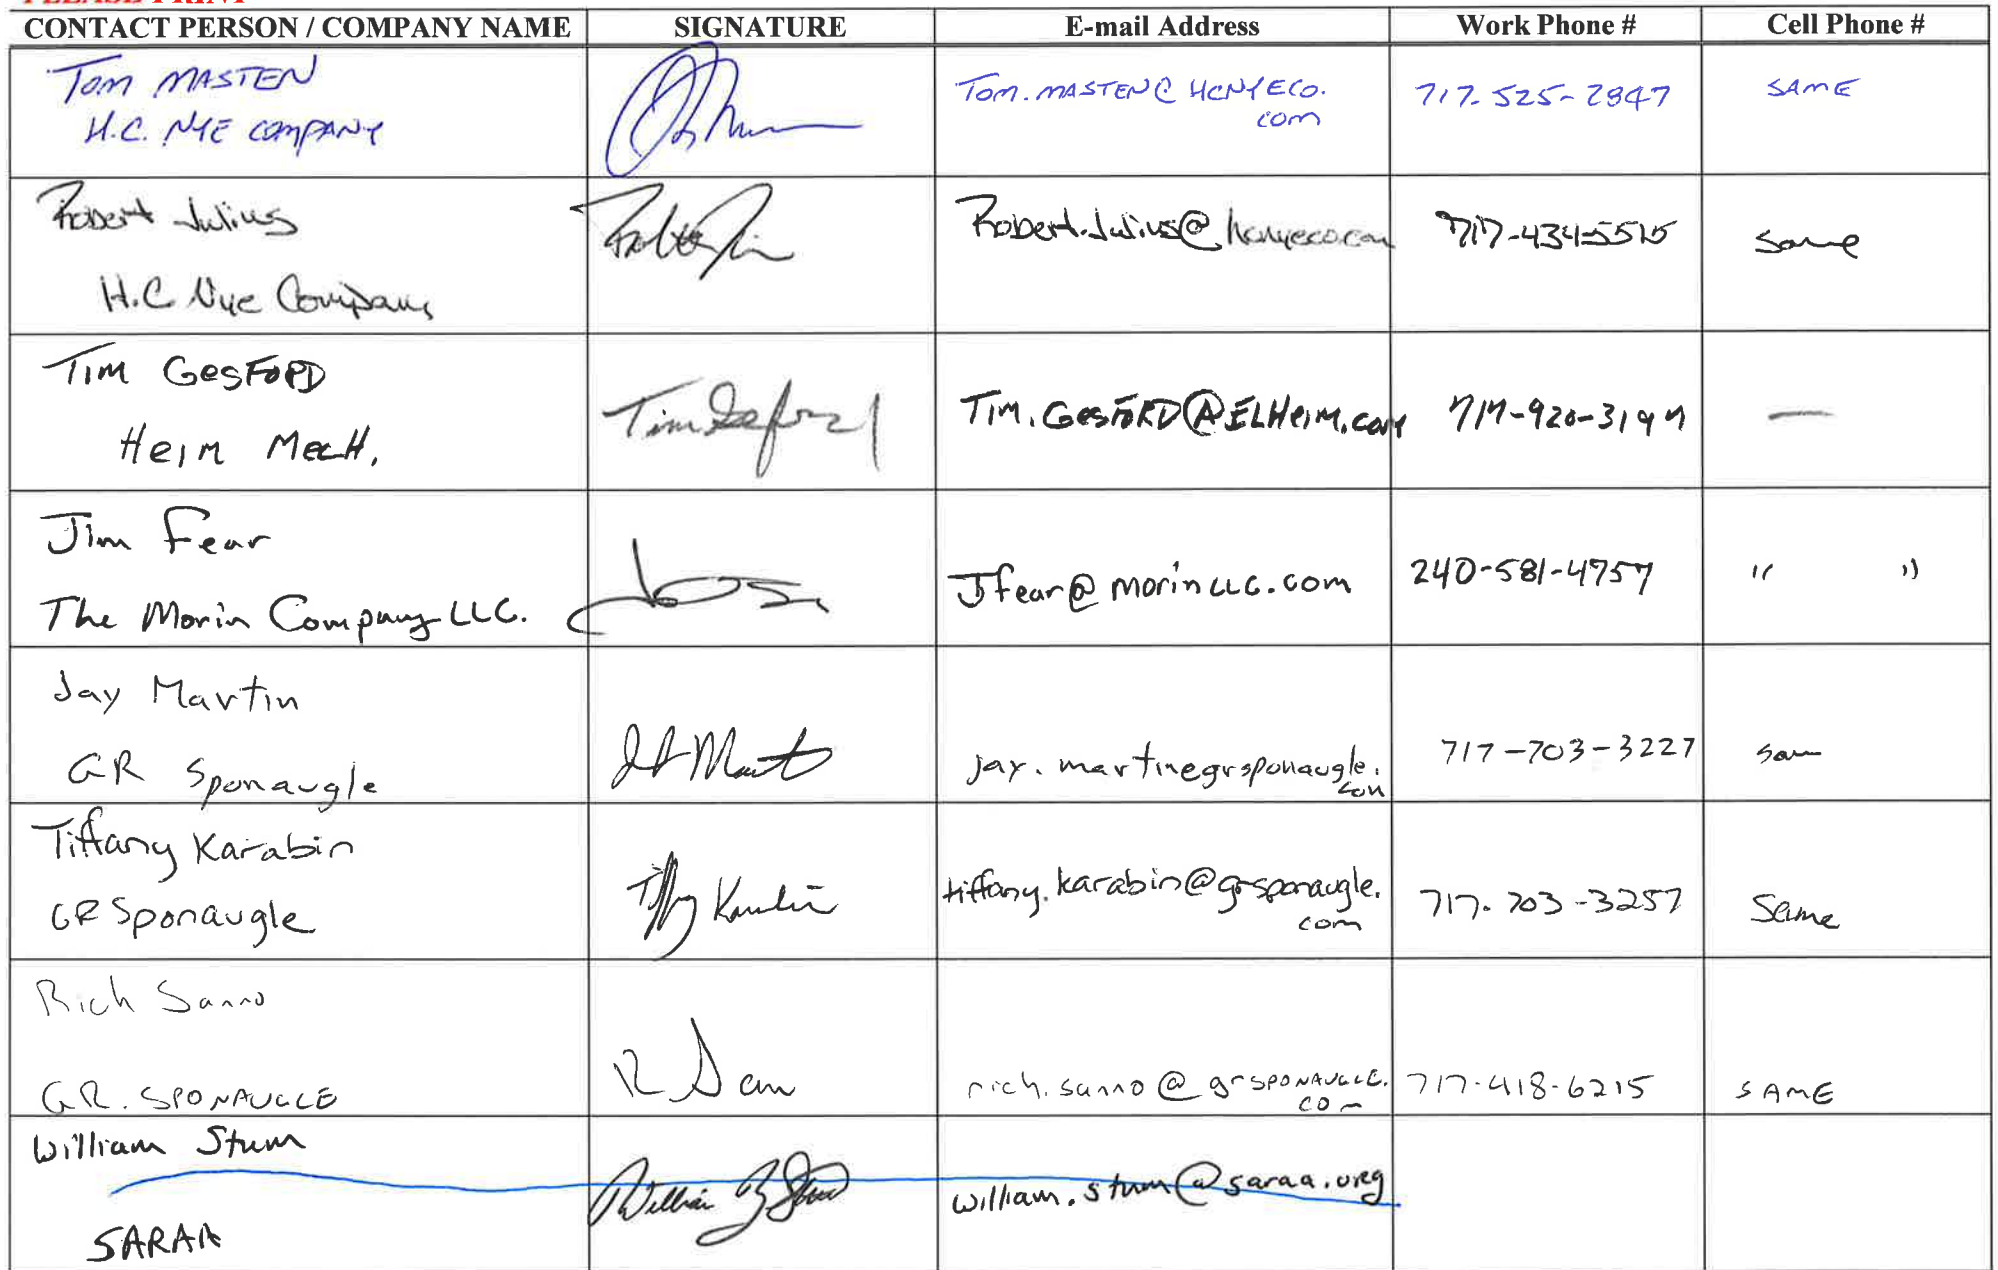 PLEASE PRINT
CONTACT PERSON / COMPANY NAME SIGNATURE E-mail Address Work Phone # Cell Phone #
Tom MASTEN
H.C. NYE COMPANY
TOM.MASTEN@HCNYECO.
com
717-525-2847
SAME
Robert Julius
H.C Nye Company
Robert.Julius@hcnyeco.com
717-434-5515
Same
Tim GesFORD
Heim Mech.
Tim.GesFORD@ELHeim.com
717-920-3197
—
Jim Fear
The Morin Company LLC.
Jfear@morinLLC.com
240-581-4757
" "
Jay Martin
GR Sponaugle
jay.martin@grsponaugle.
com
717-703-3227
Sam
Tiffany Karabin
GR Sponaugle
Tiffany Karabin
tiffany.karabin@grsponaugle.
com
717-703-3257
Same
Rich Sanno
G.R. SPONAUGLE
R San
rich.sanno@grSPONAUGLE.
com
717-418-6215
SAME
William Stum
SARAA
William Stum
william.stum@saraa.org